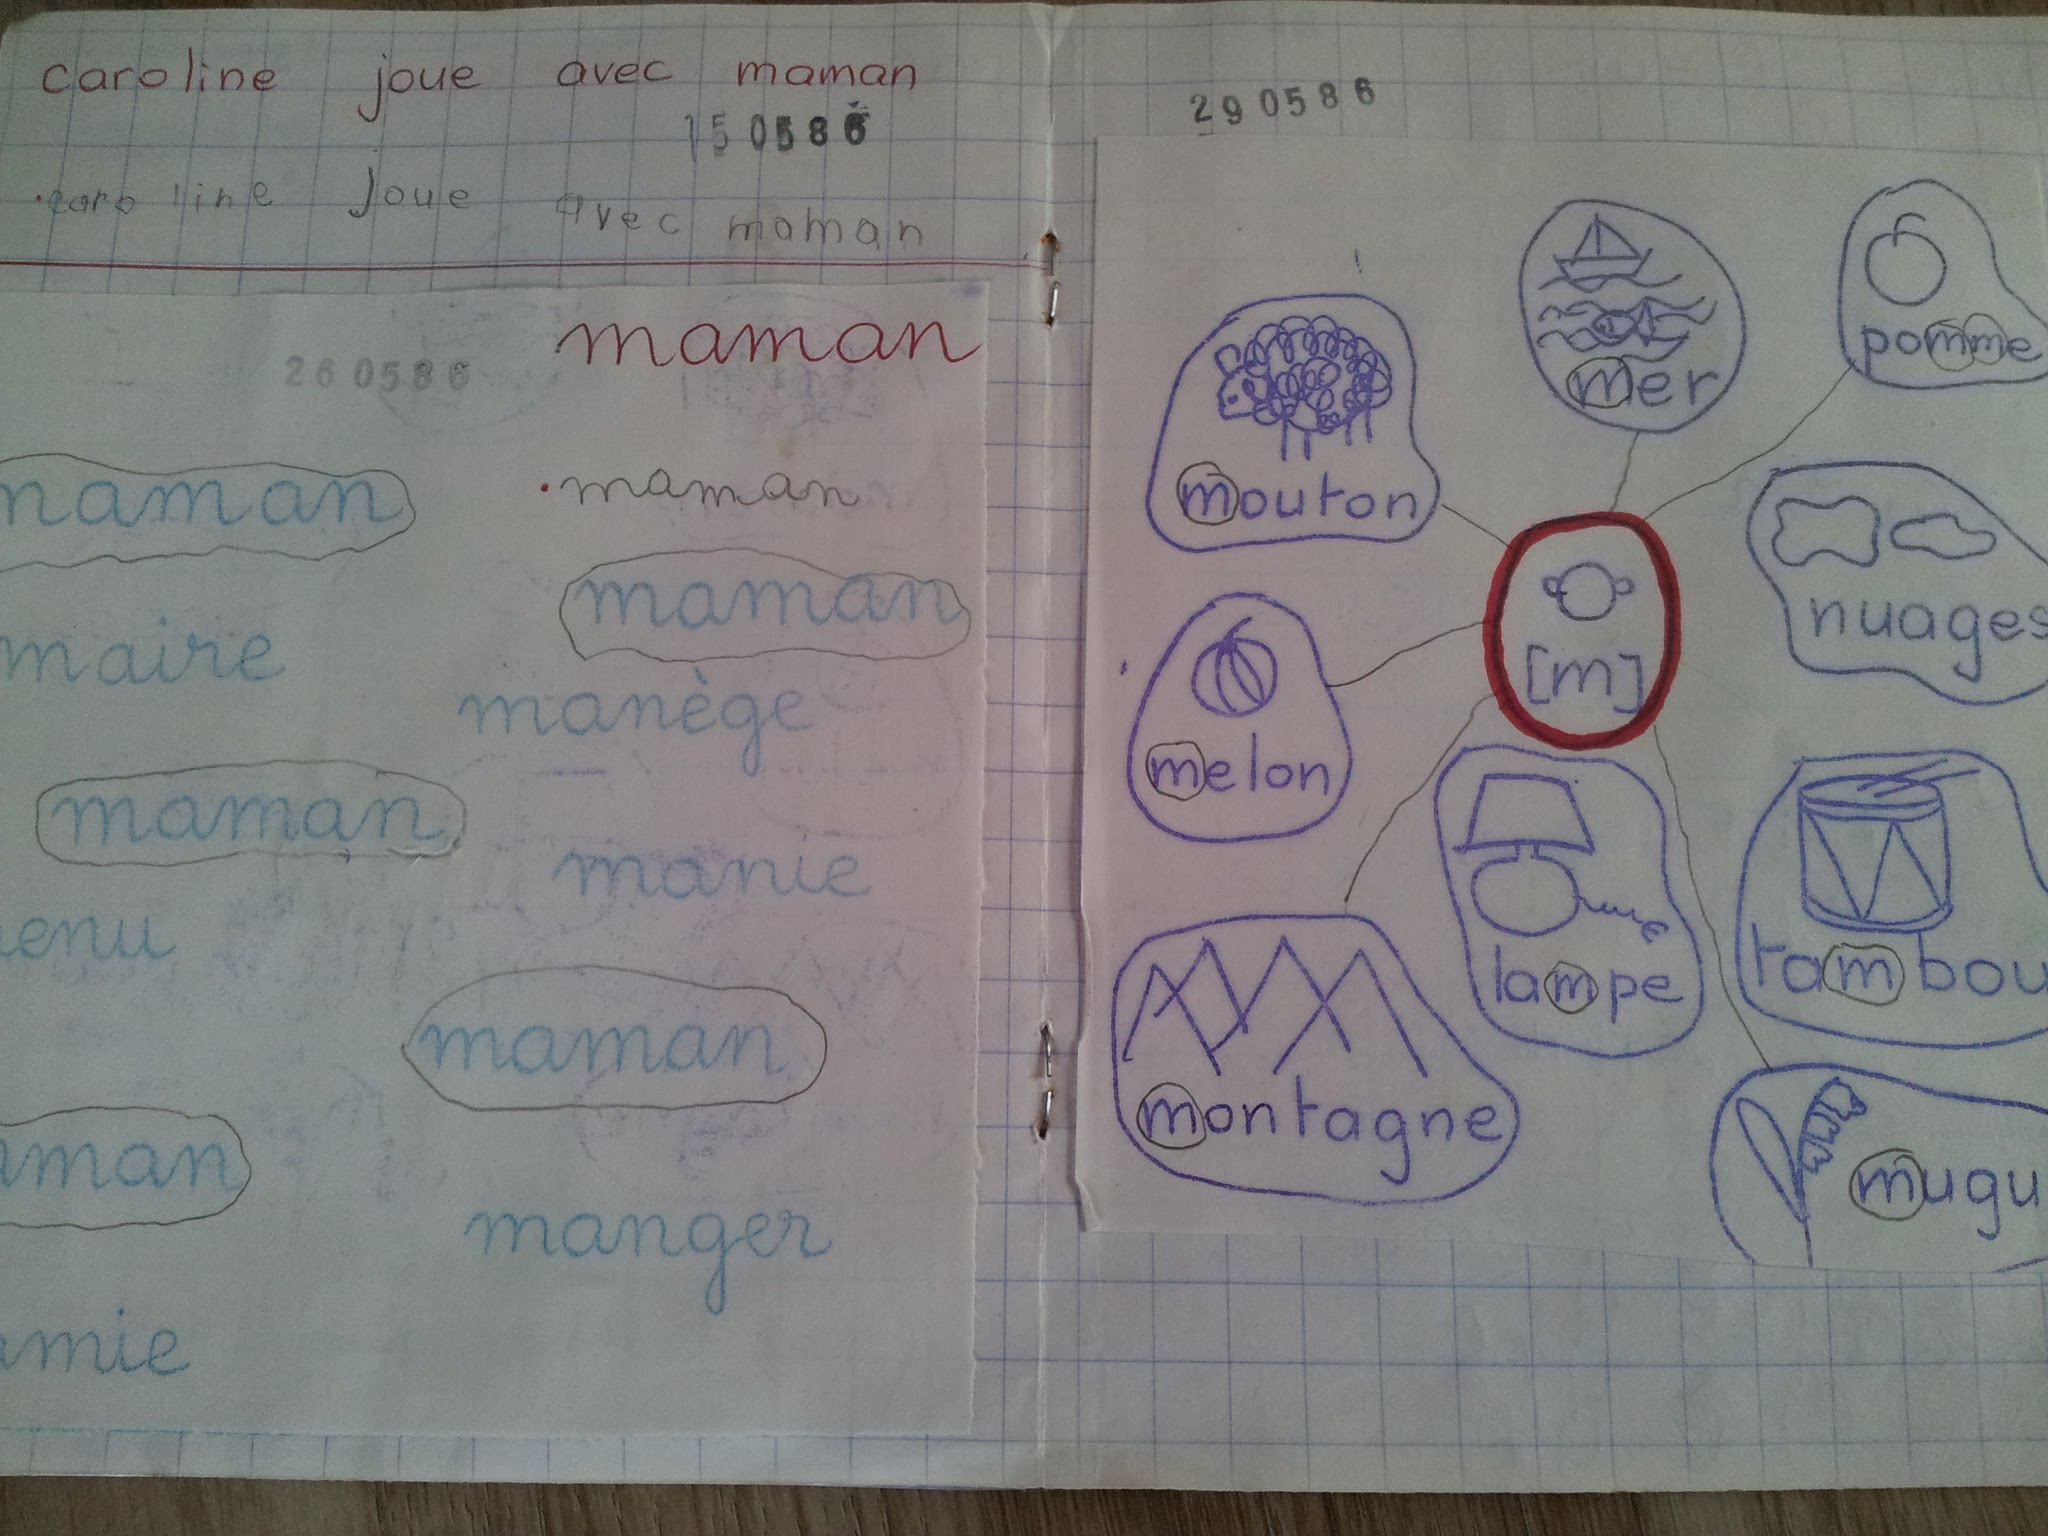 caroline joue avec maman
150586
caroline joue avec maman
maman
260586
maman
maman
maman
maire
manège
maman
manie
enu
maman
aman
manger
amie
290586
mer
pomme
mouton
nuages
[m]
melon
lampe
tambou
montagne
mugu